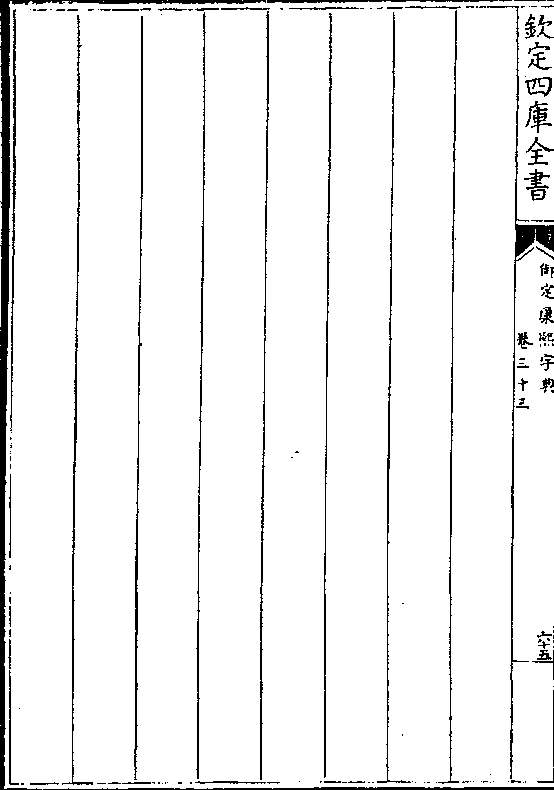 欽定四庫全書
御定康熙字典
卷三十三
六十五